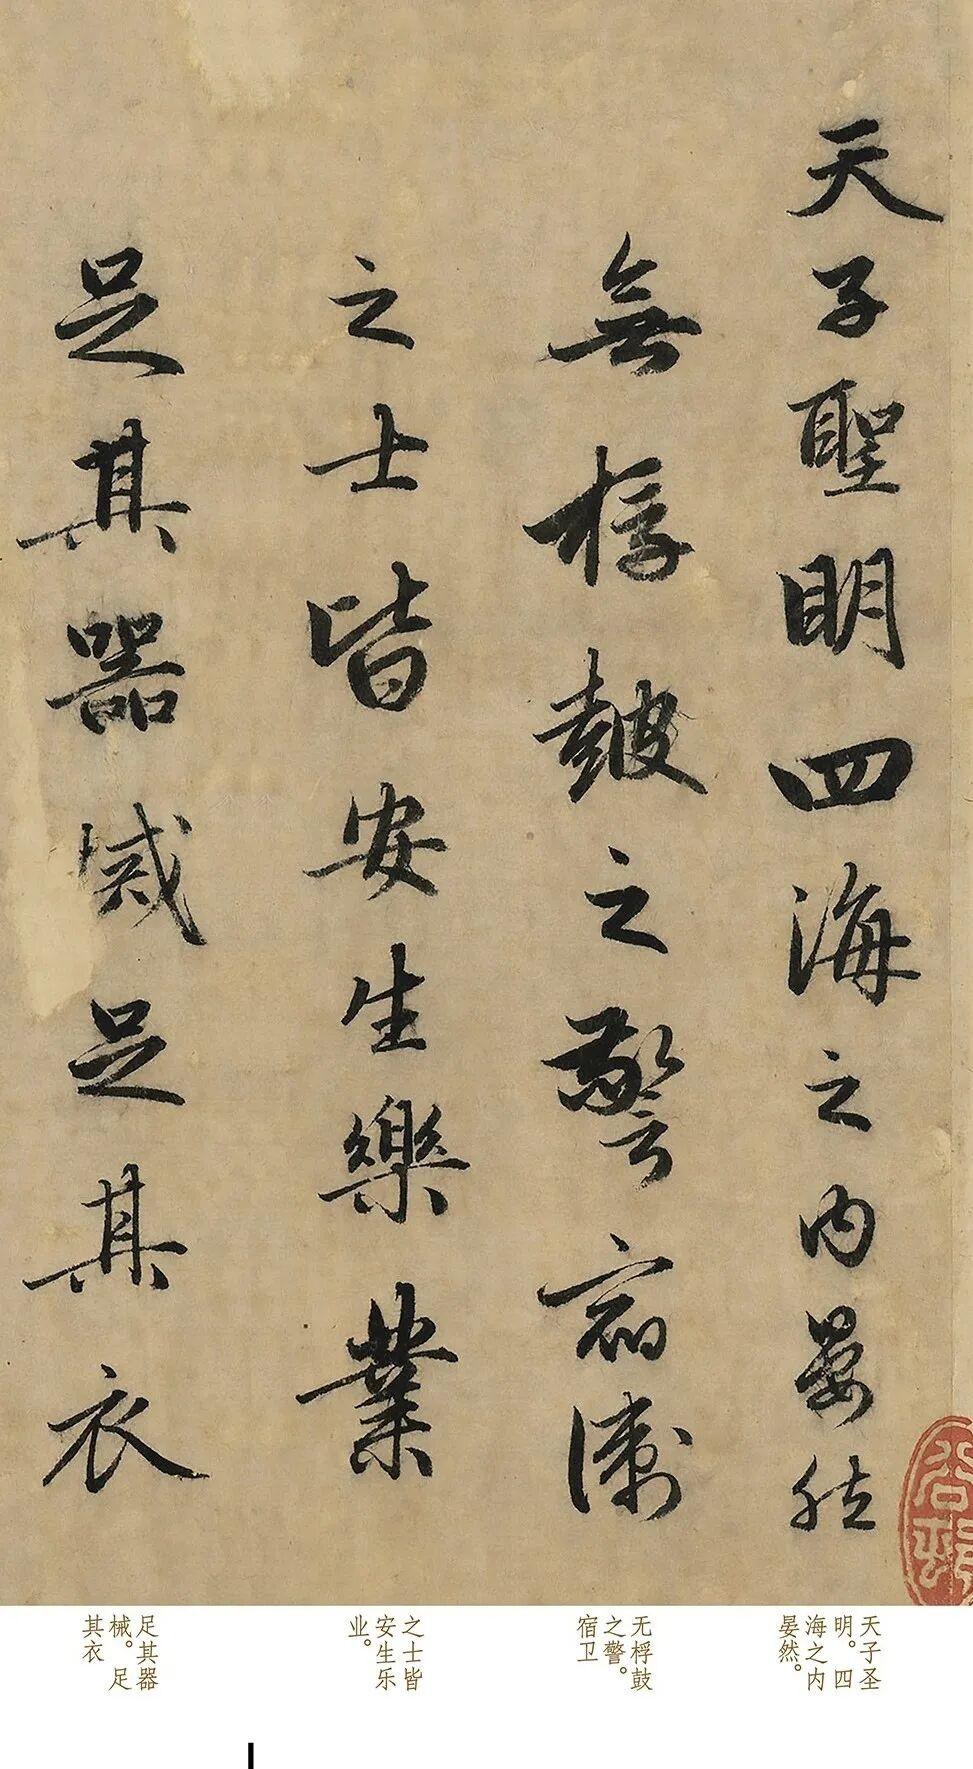 天子聖明四海之内晏然
無桴鼓之警宿衛
之士皆安生樂業
足其器械足其衣
天子圣
明。四
海之内
晏然。
无桴鼓
之警。
宿卫
之士皆
安生乐
业。
足其器
械。足
其衣